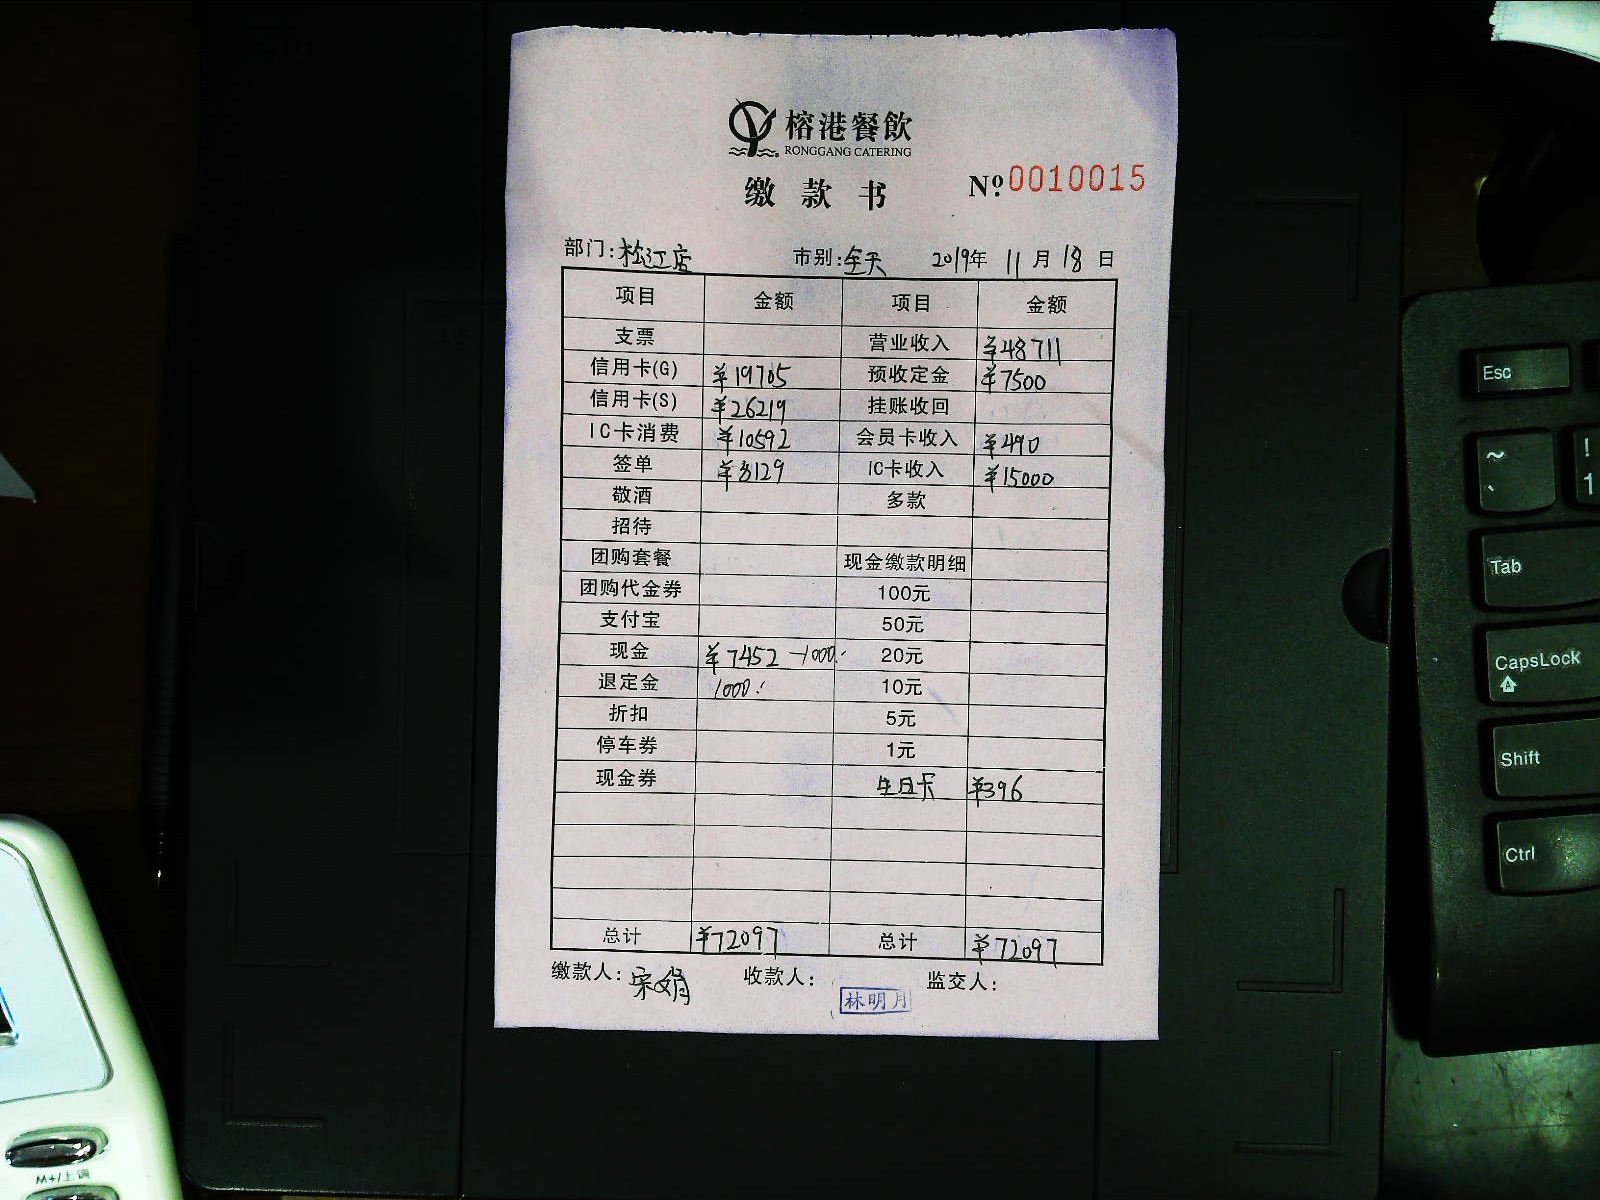 榕港餐飲
RONGGANG CATERING
缴款书 Nº 0010015
部门:松江店 市别:全天 2019年 11月18日
项目 金额 项目 金额
支票 营业收入 ¥48711
信用卡(G) ¥19705 预收定金 ¥7500
信用卡(S) ¥26219 挂账收回
IC卡消费 ¥10592 会员卡收入 ¥490
签单 ¥8129 IC卡收入 ¥15000
敬酒 多款
招待
团购套餐 现金缴款明细
团购代金券 100元
支付宝 50元
现金 ¥7452 -1000.- 20元
退定金 1000.- 10元
折扣 5元
停车券 1元
现金券 生日卡 ¥396
总计 ¥72097 总计 ¥72097
缴款人:宋娟 收款人: 林明月 监交人:
Esc
~
、
!
1
Tab
CapsLock
A
Shift
Ctrl
M+/上调